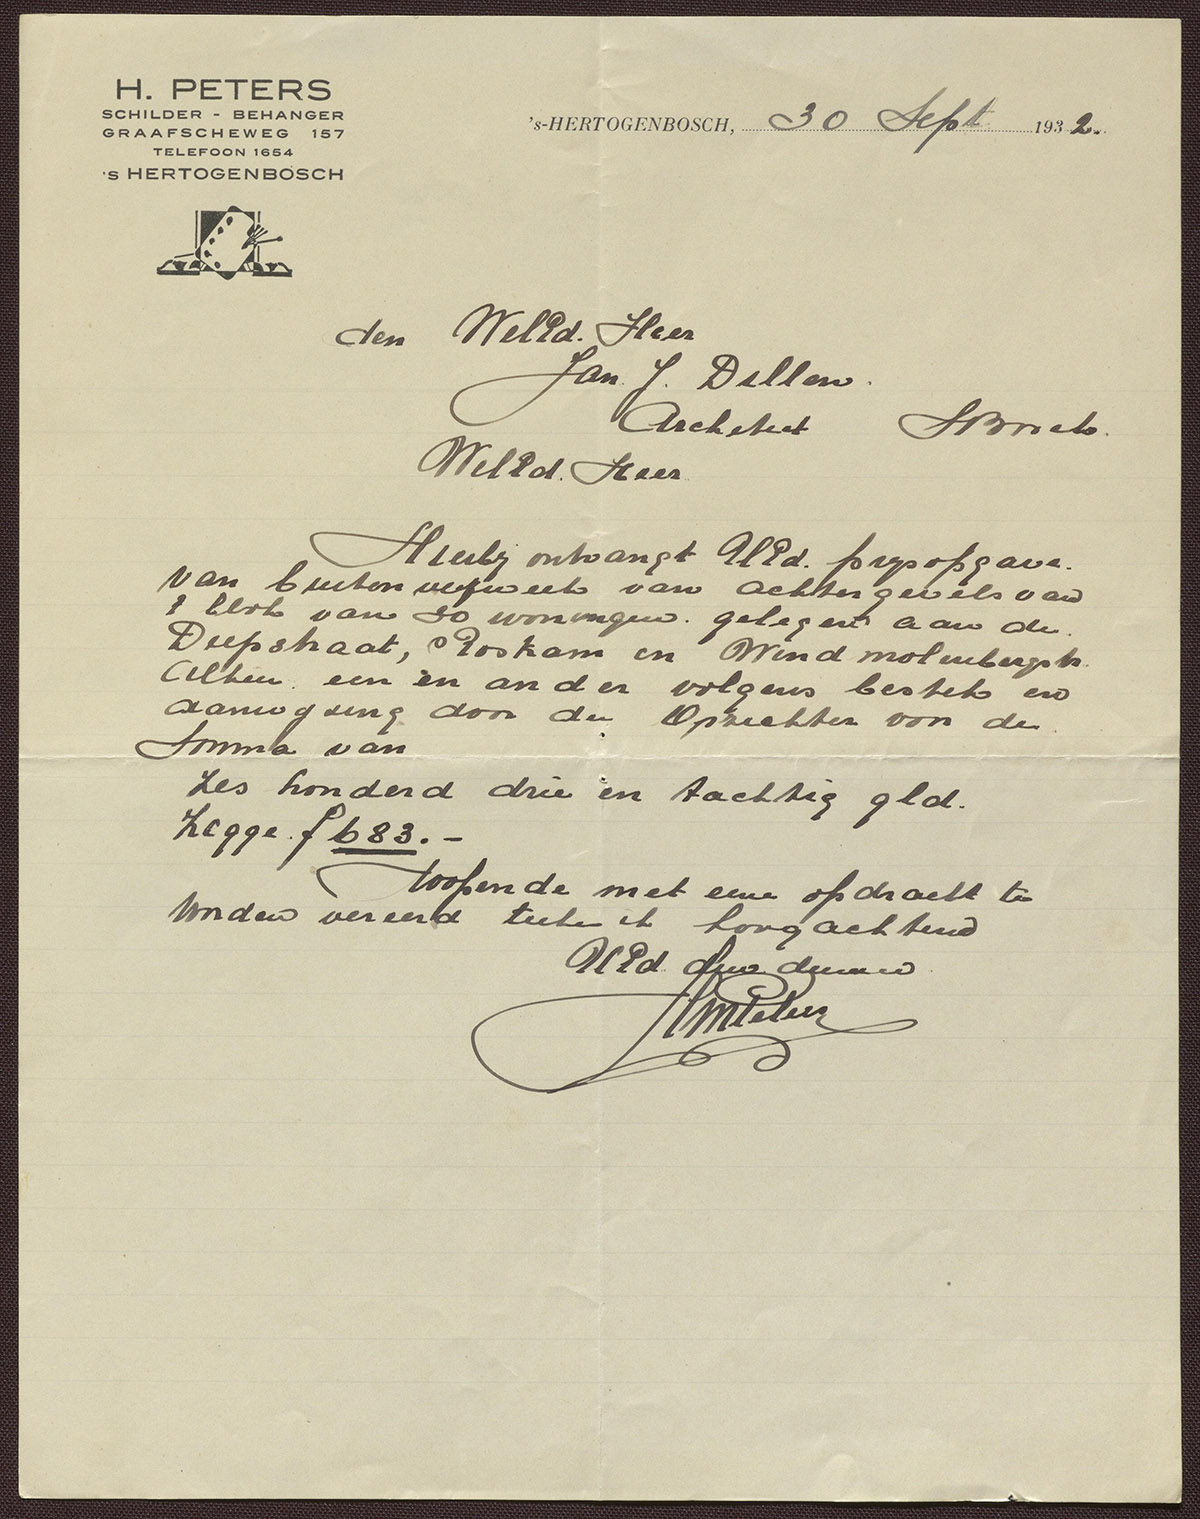 H. PETERS
SCHILDER - BEHANGER
GRAAFSCHEWEG 157
TELEFOON 1654
's HERTOGENBOSCH
's-HERTOGENBOSCH, 30 Sept 1932.
den WelEd. Heer
Jan J. Dellen.
Architect
WelEd. Heer
Hierby ontvangt UEd. prysopgave.
van buitenverfwerk van achtergevels van
1 blok van 30 woningen. gelegen aan de.
Diepstraat, Roskam en Windmolenbergstr.
Alhier. een en ander volgens bestek en
aanwyzing door den Opzichter voor de
Somma van
Zes honderd drie en tachtig gld.
Zegge. f 683.-
Hoopende met eene opdracht te
worden vereerd teeken ik hoogachtend
UEd dw. dienaar
HMPeters